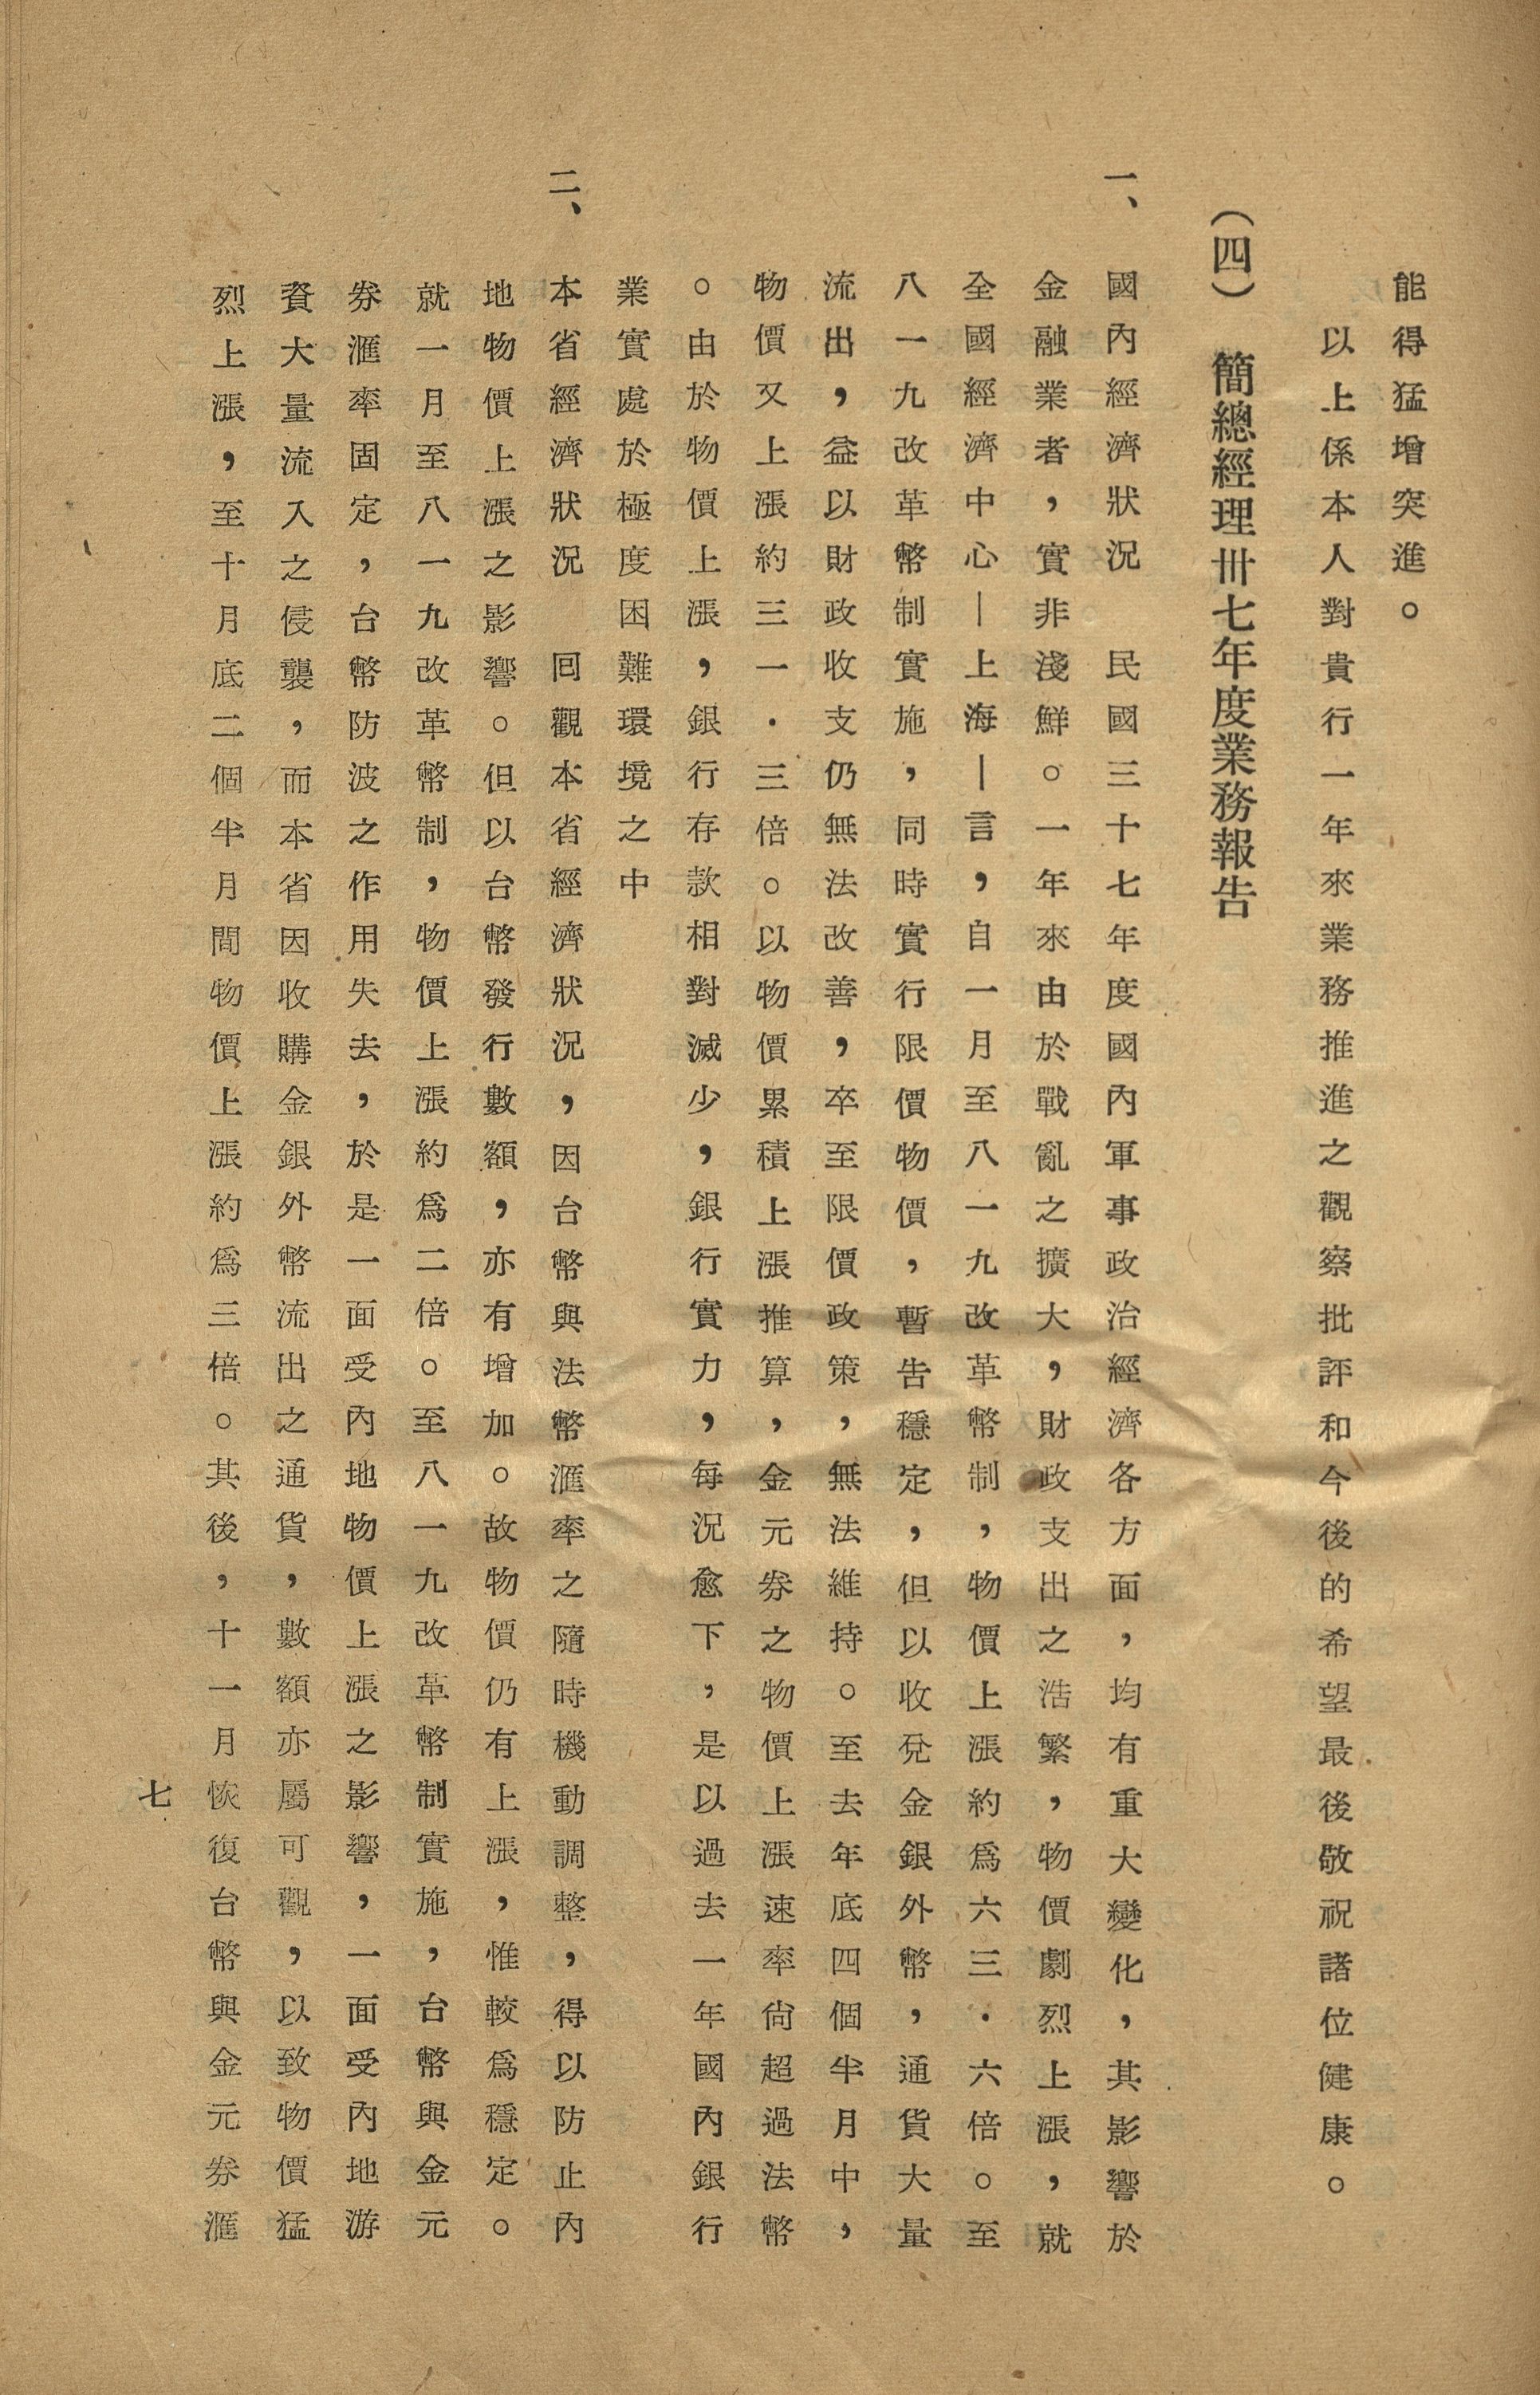 能得猛增突進。
以上係本人對貴行一年來業務推進之觀察批評和今後的希望最後敬祝諸位健康。
(四) 簡總經理卅七年度業務報告
一、國內經濟狀況 民國三十七年度國內軍事政治經濟各方面，均有重大變化，其影響於
金融業者，實非淺鮮。一年來由於戰亂之擴大，財政支出之浩繁，物價劇烈上漲，就
全國經濟中心—上海—言，自一月至八一九改革幣制，物價上漲約爲六三．六倍。至
八一九改革幣制實施，同時實行限價物價，暫告穩定，但以收兌金銀外幣，通貨大量
流出，益以財政收支仍無法改善，卒至限價政策，無法維持。至去年底四個半月中，
物價又上漲約三一．三倍。以物價累積上漲推算，金元券之物價上漲速率尙超過法幣
。由於物價上漲，銀行存款相對減少，銀行實力，每況愈下，是以過去一年國內銀行
業實處於極度困難環境之中
二、本省經濟狀況 回觀本省經濟狀況，因台幣與法幣滙率之隨時機動調整，得以防止內
地物價上漲之影響。但以台幣發行數額，亦有增加。故物價仍有上漲，惟較爲穩定。
就一月至八一九改革幣制，物價上漲約爲二倍。至八一九改革幣制實施，台幣與金元
券滙率固定，台幣防波之作用失去，於是一面受內地物價上漲之影響，一面受內地游
資大量流入之侵襲，而本省因收購金銀外幣流出之通貨，數額亦屬可觀，以致物價猛
烈上漲，至十月底二個半月間物價上漲約爲三倍。其後，十一月恢復台幣與金元券滙
七